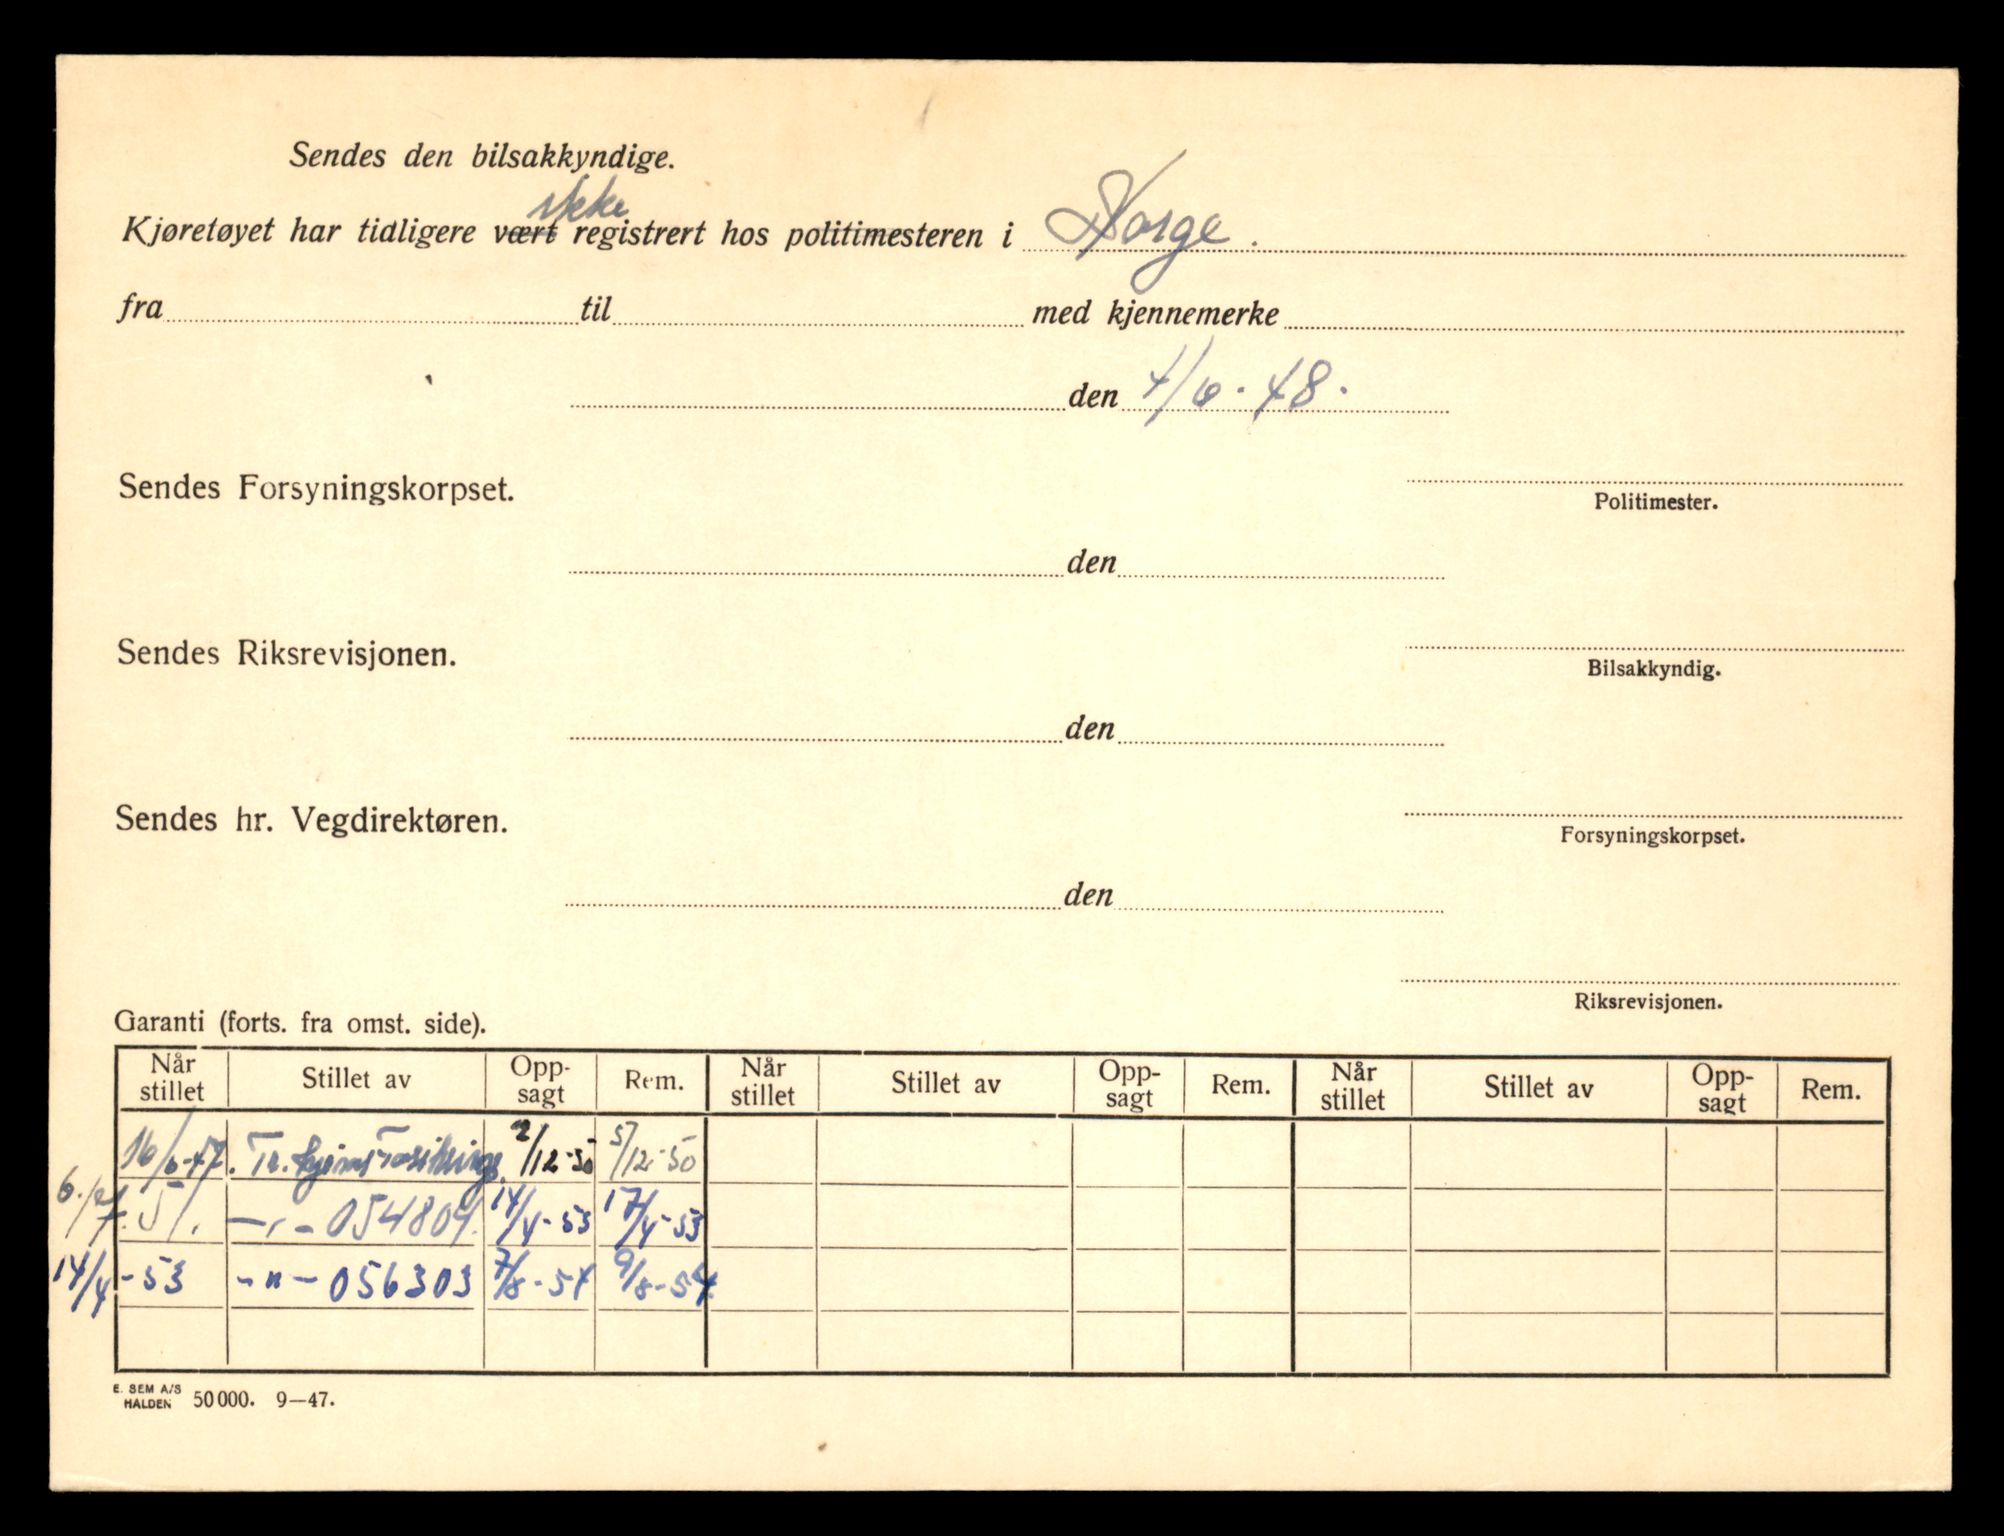 Sendes den bilsakkyndige.
ikke
Kjøretøyet har tidligere vært registrert hos politimesteren i Norge.
fra til med kjennemerke
den 4/6-48.
Sendes Forsyningskorpset.
Politimester.
den
Sendes Riksrevisjonen.
Bilsakkyndig.
den
Sendes hr. Vegdirektøren.
Forsyningskorpset.
den
Riksrevisjonen.
Garanti (forts. fra omst. side).
Når stillet Stillet av Opp-sagt Rem. Når stillet Stillet av Opp-sagt Rem. Når stillet Stillet av Opp-sagt Rem.
16/6-47. Tr.hjems Forsikrings 2/12-50 5/12-50
51. -"- 054804. 14/4-53 17/4-53
14/4-53 -"- 056303 7/8-54 9/8-54.
E. SEM A/S HALDEN 50000. 9—47.